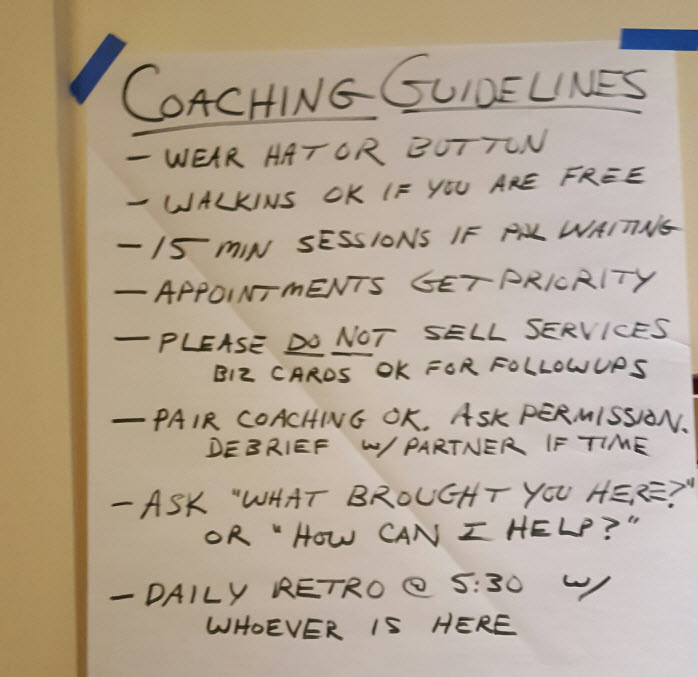 COACHING GUIDELINES
- WEAR HAT OR BUTTON
- WALKINS OK IF YOU ARE FREE
- 15 MIN SESSIONS IF PPL WAITING
- APPOINTMENTS GET PRIORITY
- PLEASE DO NOT SELL SERVICES
BIZ CARDS OK FOR FOLLOWUPS
- PAIR COACHING OK. ASK PERMISSION.
DEBRIEF w/ PARTNER IF TIME
- ASK "WHAT BROUGHT YOU HERE?"
OR "HOW CAN I HELP?"
- DAILY RETRO @ 5:30 w/
WHOEVER IS HERE